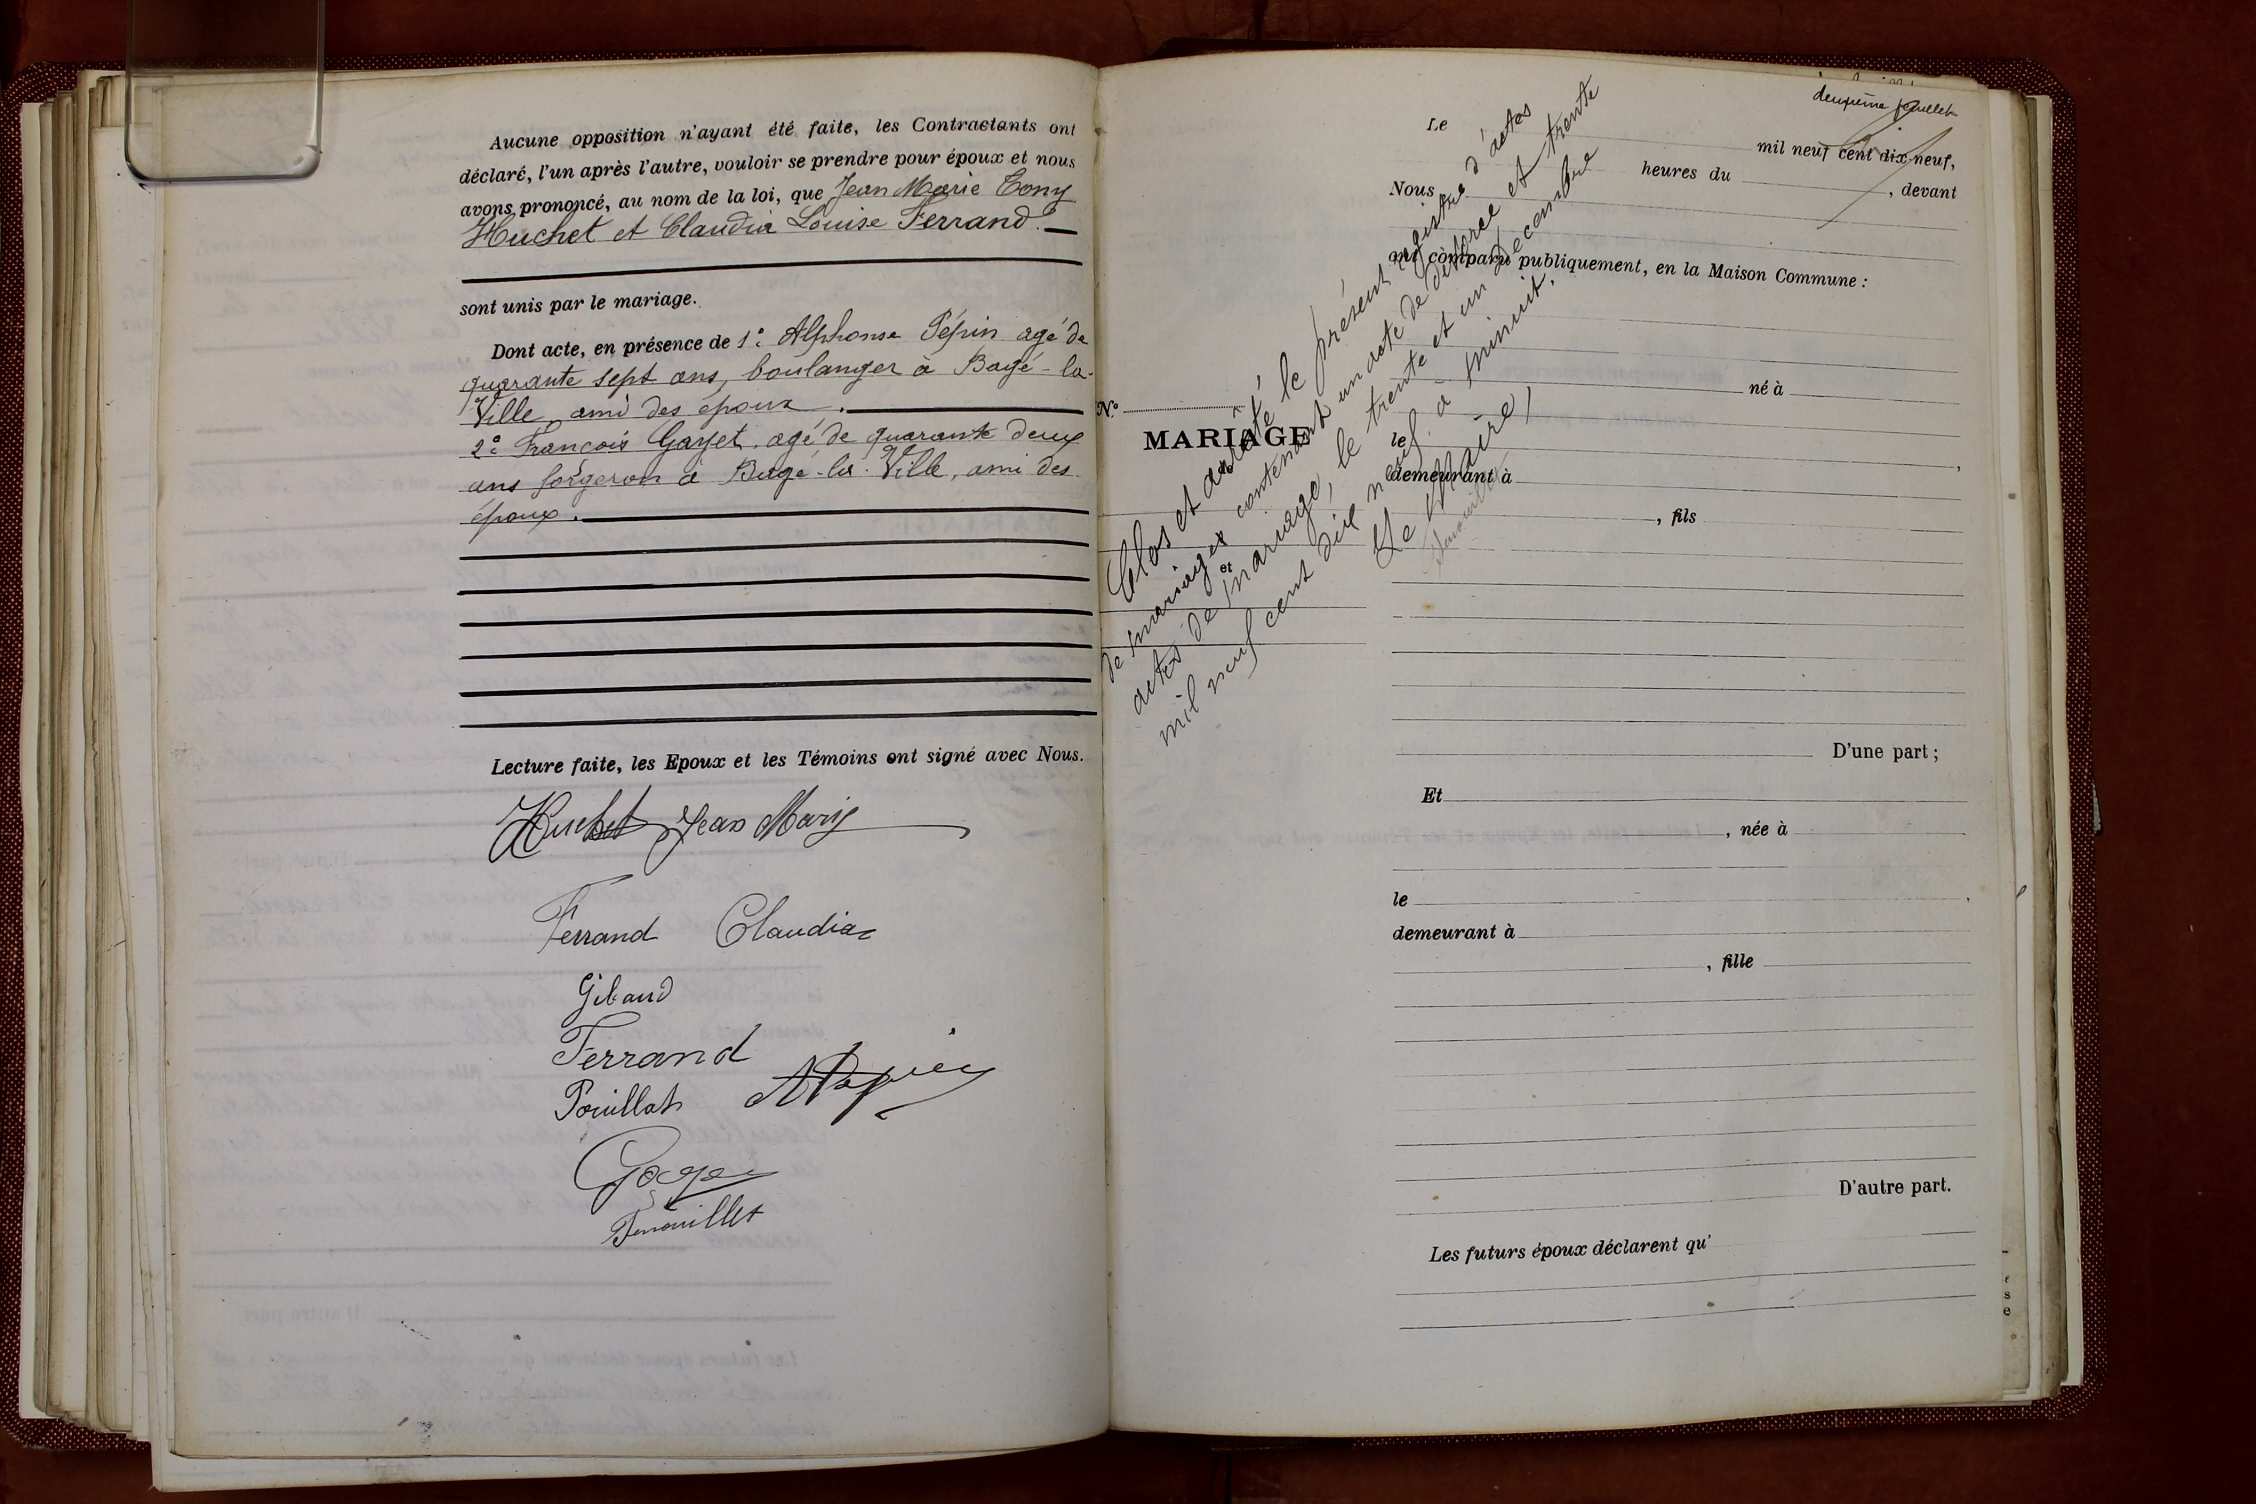 Aucune opposition n'ayant été faite, les Contractants ont
déclaré, l'un après l'autre, vouloir se prendre pour époux et nous
avons prononcé, au nom de la loi, que Jean Marie Tony
Huchet et Claudia Louise Ferrand.
sont unis par le mariage.
Dont acte, en présence de 1° Alphonse Pépin agé de
quarante sept ans, boulanger à Bagé-la-
Ville, ami des époux.
2° François Gayet, agé de quarante deux
ans forgeron à Bagé-la-Ville, ami des
époux.
Lecture faite, les Epoux et les Témoins ont signé avec Nous.
Huchet Jean Mary
Ferrand Claudia
Giband
Ferrand
Pouillat
Fenouillet
deuxième feuillet
Le
mil neuf cent dix-neuf,
heures du , devant
Nous
ont comparu publiquement, en la Maison Commune :
né à
N°
MARIAGE
le
demeurant à
, fils
et
Clos et arrêté le présent registre d'actes
de mariages contenant un acte de divorce et trente
actes de mariage, le trente et un décembre
mil neuf cent dix neuf à minuit.
Le Maire,
D'une part ;
Et
, née à
le
demeurant à
, fille
D'autre part.
Les futurs époux déclarent qu'